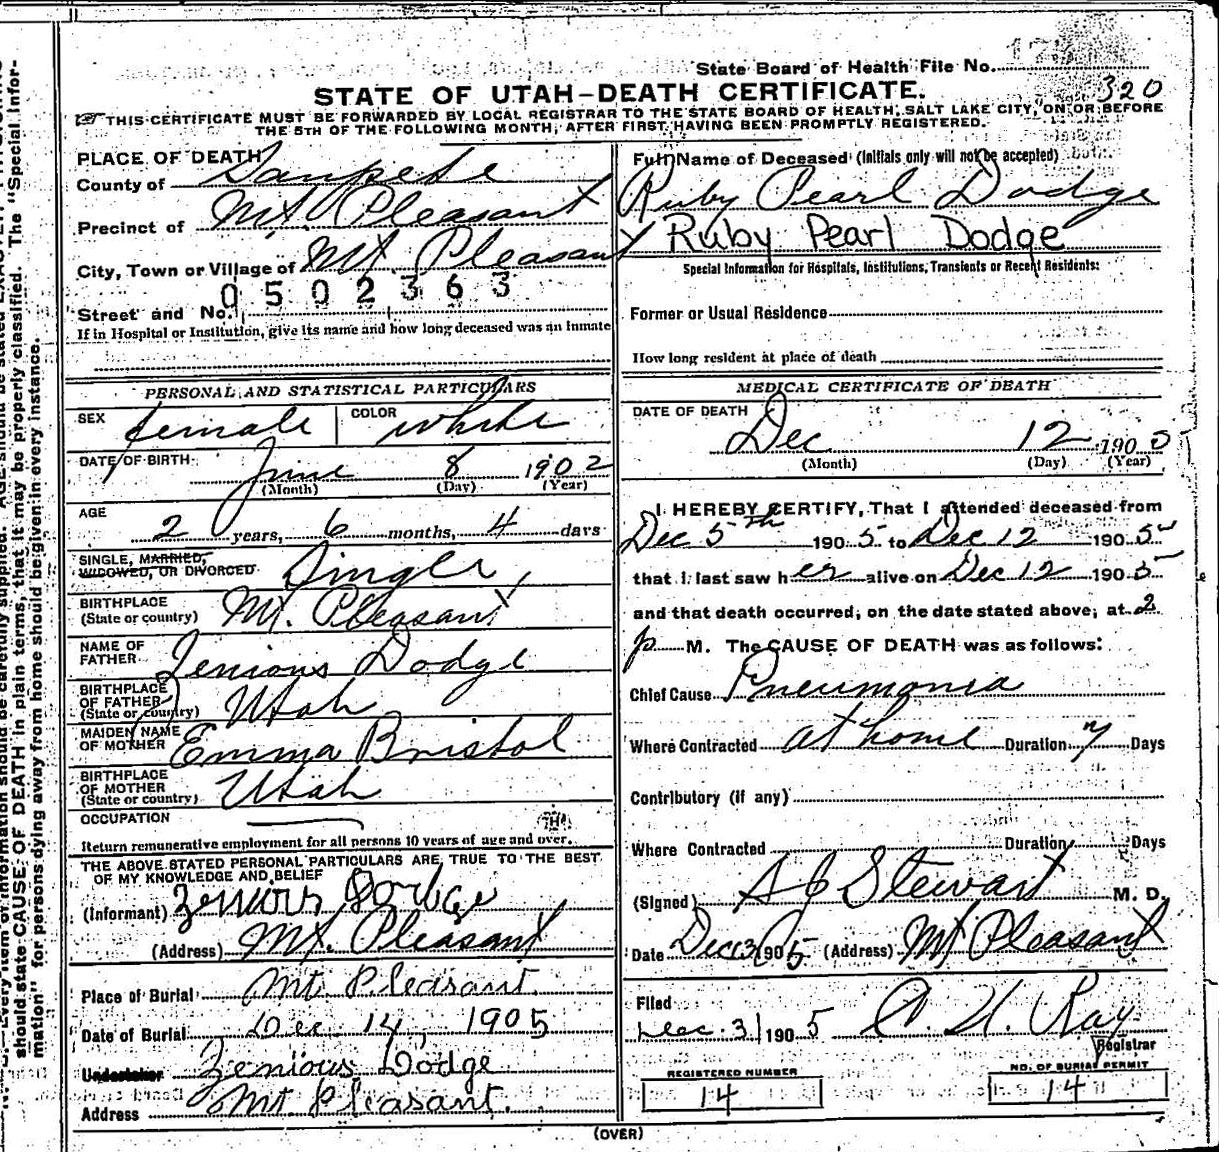 State Board of Health File No.
320
STATE OF UTAH—DEATH CERTIFICATE.
THIS CERTIFICATE MUST BE FORWARDED BY LOCAL REGISTRAR TO THE STATE BOARD OF HEALTH, SALT LAKE CITY, ON OR BEFORE
THE 5TH OF THE FOLLOWING MONTH, AFTER FIRST HAVING BEEN PROMPTLY REGISTERED.
PLACE OF DEATH
County of Sanpete
Precinct of Mt. Pleasant
City, Town or Village of Mt Pleasant
0502363
Street and No.
If in Hospital or Institution, give its name and how long deceased was an inmate
PERSONAL AND STATISTICAL PARTICULARS
SEX female COLOR white
DATE OF BIRTH June 8 1902
(Month) (Day) (Year)
AGE
2 years, 6 months, 4 days
SINGLE, MARRIED,
WIDOWED, OR DIVORCED Single
BIRTHPLACE
(State or country) Mt. Pleasant
NAME OF
FATHER Zenious Dodge
BIRTHPLACE
OF FATHER
(State or country) Utah
MAIDEN NAME
OF MOTHER Emma Bristol
BIRTHPLACE
OF MOTHER
(State or country) Utah
OCCUPATION
Return remunerative employment for all persons 10 years of age and over.
THE ABOVE STATED PERSONAL PARTICULARS ARE TRUE TO THE BEST
OF MY KNOWLEDGE AND BELIEF
(Informant) Zenious Dodge
(Address) Mt. Pleasant
Place of Burial Mt. Pleasant.
Date of Burial Dec. 14, 1905
Undertaker Zenious Dodge
Address Mt Pleasant.
Full Name of Deceased (Initials only will not be accepted)
Ruby Pearl Dodge
Ruby Pearl Dodge
Special Information for Hospitals, Institutions, Transients or Recent Residents:
Former or Usual Residence
How long resident at place of death
MEDICAL CERTIFICATE OF DEATH
DATE OF DEATH
Dec 12 1905
(Month) (Day) (Year)
I HEREBY CERTIFY, That I attended deceased from
Dec 5th 1905 to Dec 12 1905
that I last saw her alive on Dec 12 1905
and that death occurred, on the date stated above, at 2
p M. The CAUSE OF DEATH was as follows:
Chief Cause Pneumonia
Where Contracted at home Duration 7 Days
Contributory (if any)
Where Contracted Duration Days
(Signed) Stewart M. D.
Date Dec 13 1905 (Address) Mt Pleasant
Filed
Dec. 31 1905 Ray
Registrar
REGISTERED NUMBER
14
NO. OF BURIAL PERMIT
14
(OVER)
should state CAUSE OF DEATH in plain terms, that it may be properly classified. The "Special Infor-
mation" for persons dying away from home should be given in every instance.